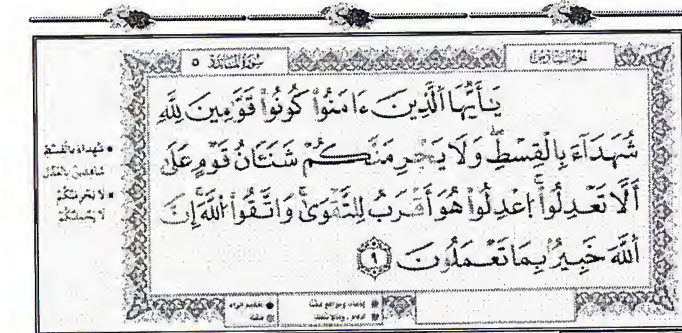 الجزء السادس
سورة المائدة ٥
يَٰٓأَيُّهَا ٱلَّذِينَ ءَامَنُوا۟ كُونُوا۟ قَوَّٰمِينَ لِلَّهِ
شُهَدَآءَ بِٱلْقِسْطِ ۖ وَلَا يَجْرِمَنَّكُمْ شَنَـَٔانُ قَوْمٍ عَلَىٰٓ
أَلَّا تَعْدِلُوا۟ ۚ ٱعْدِلُوا۟ هُوَ أَقْرَبُ لِلتَّقْوَىٰ ۖ وَٱتَّقُوا۟ ٱللَّهَ ۚ إِنَّ
ٱللَّهَ خَبِيرٌۢ بِمَا تَعْمَلُونَ ٩
• شُهَدَاءَ بِالْقِسْطِ
شاهدين بالعدل
• لا يَجْرِمَنَّكُمْ
لا يَحْمِلَنَّكُمْ
• تفخيم الراء